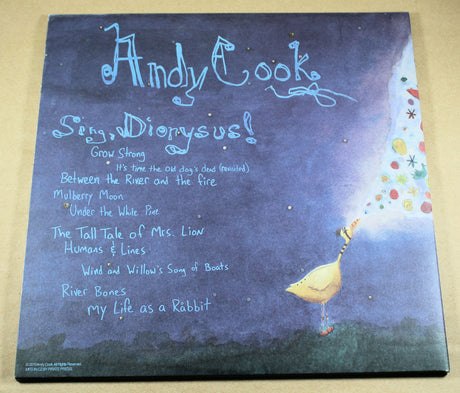 Andy Cook
Sing, Dionysus!
Grow Strong
It's time the old dog's died (revisited)
Between the River and the fire
Mulberry Moon
Under the White Pine
The Tall Tale of Mrs. Lion
Humans & Lines
Wind and Willow's Song of Boats
River Bones
My Life as a Rabbit
© 2010 Andy Cook. All Rights Reserved.